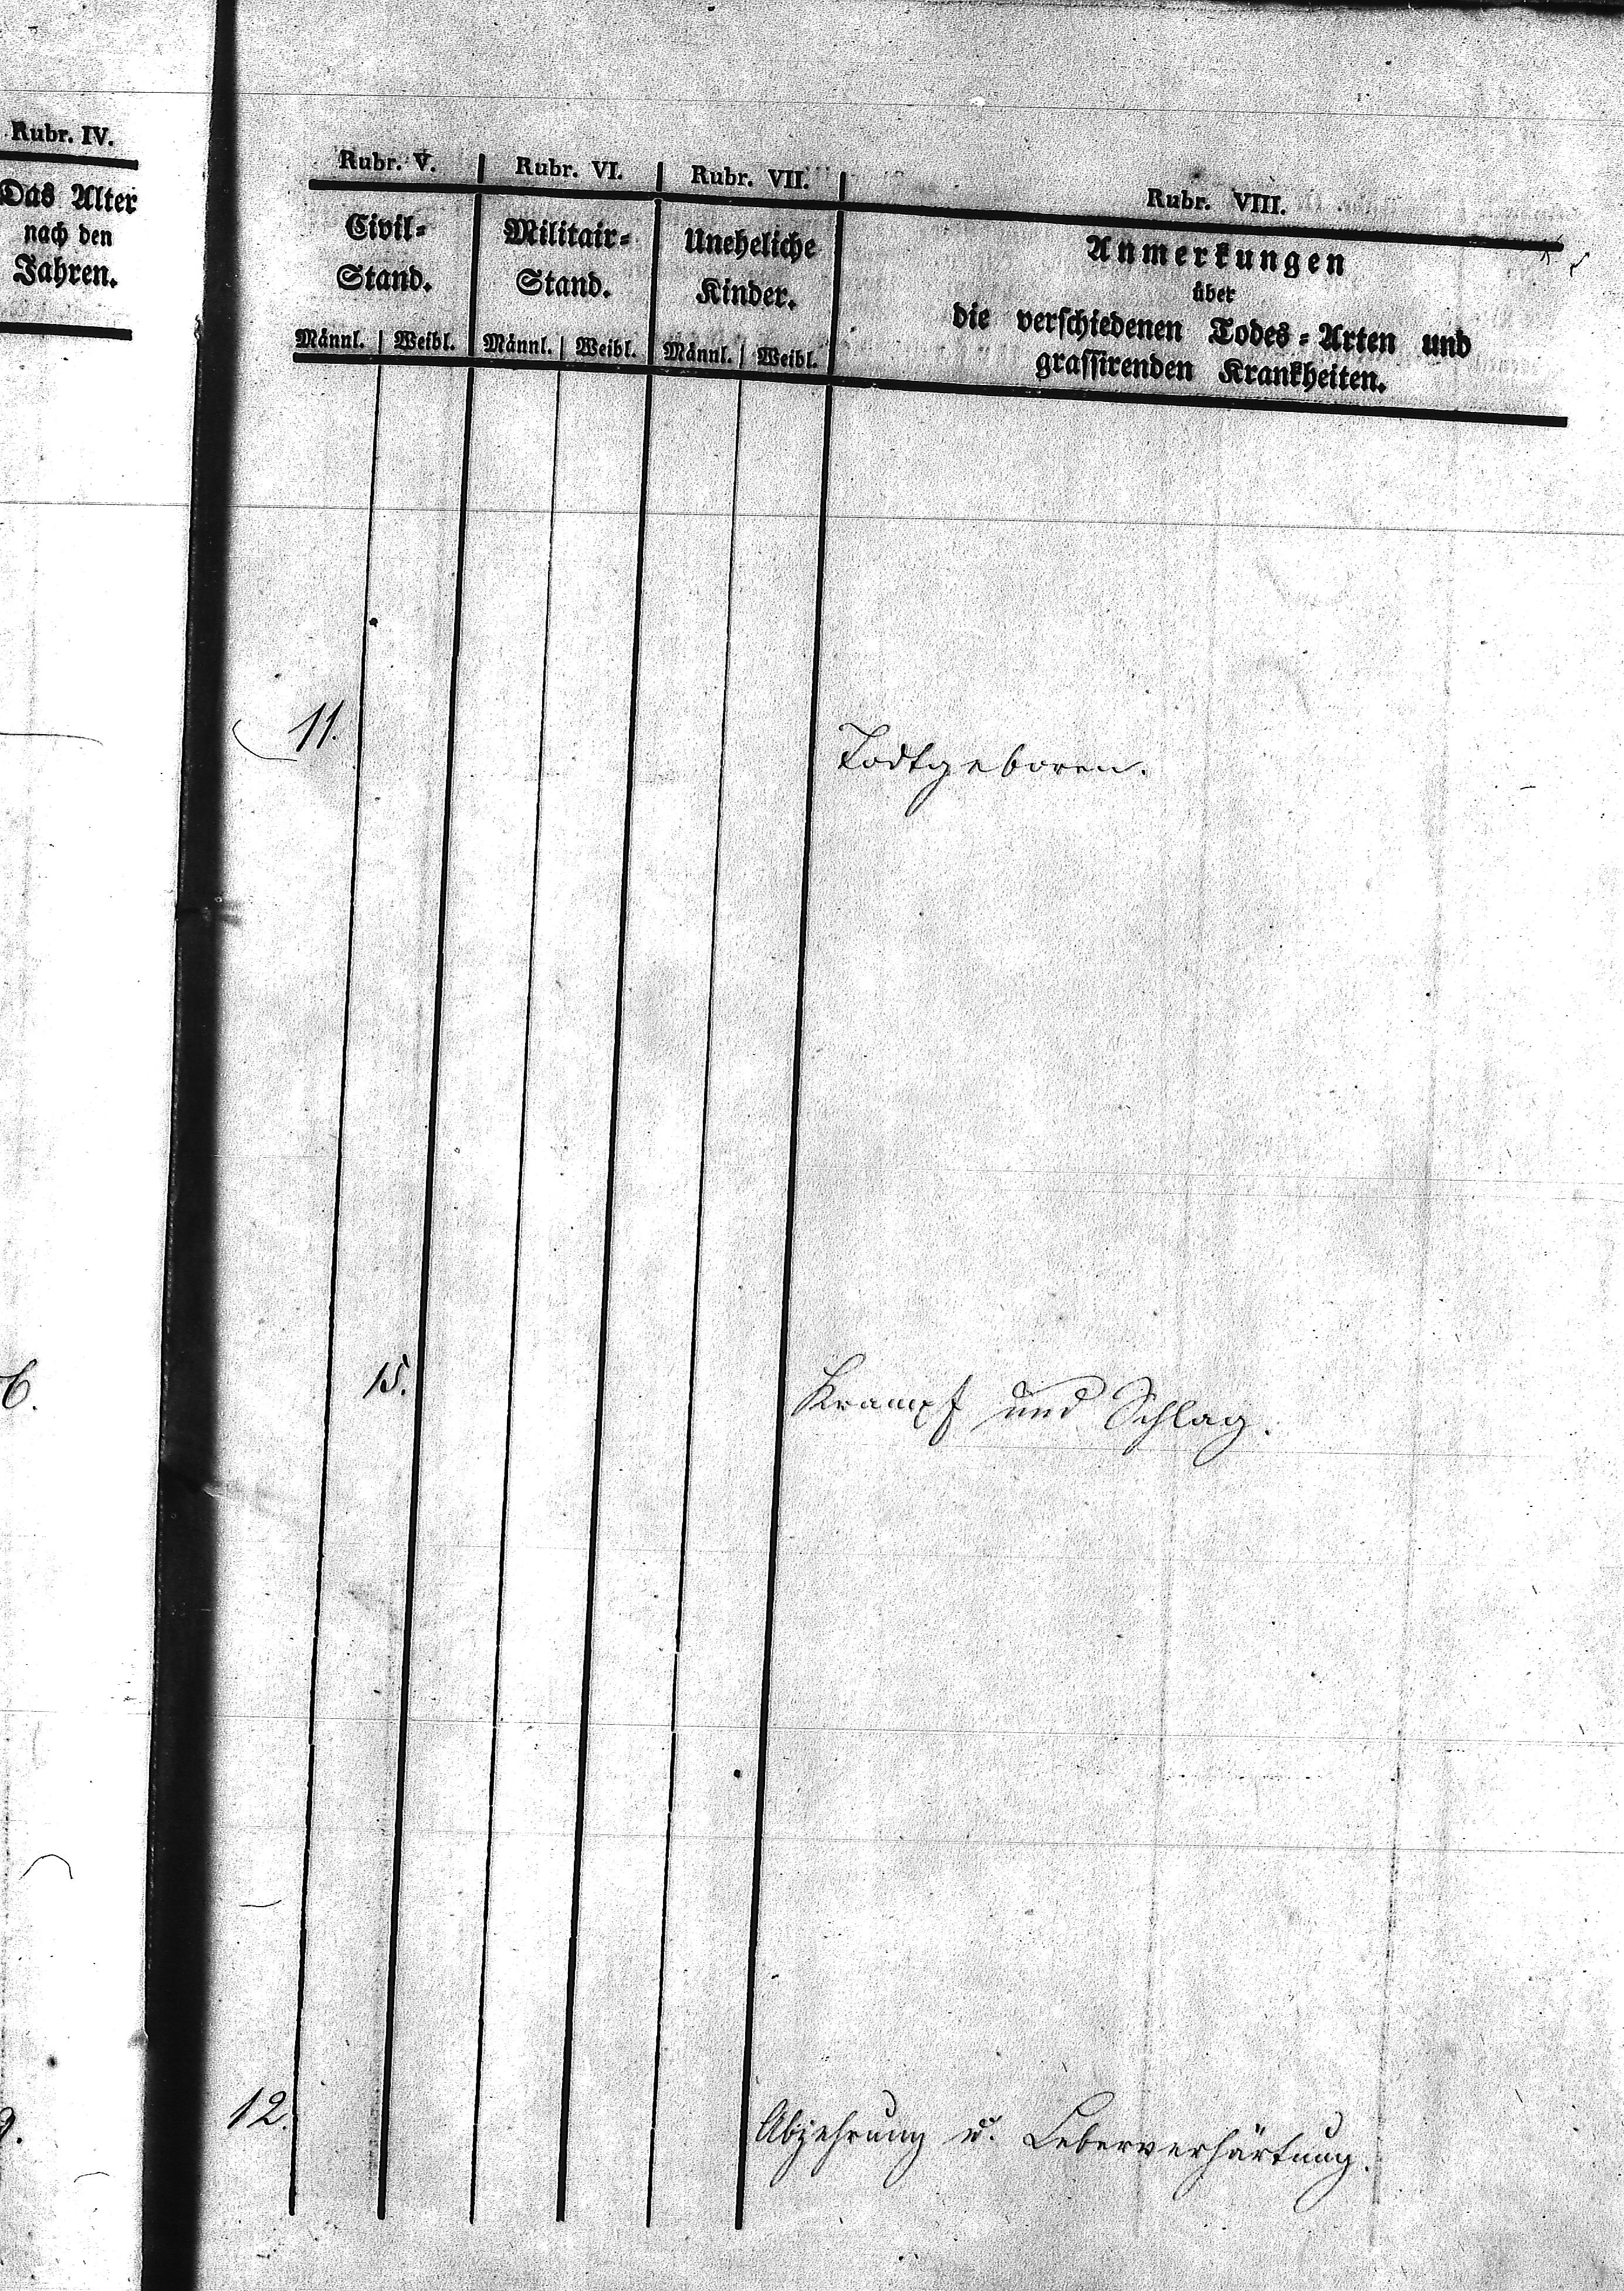 Rubr. IV.
Das Alter
nach den
Jahren.
6.
9.
Rubr. V. Rubr. VI. Rubr. VII. Rubr. VIII.
Civil=
Stand.
Männl. Weibl.
Militair=
Stand.
Männl. Weibl.
Uneheliche
Kinder.
Männl. Weibl.
Anmerkungen
über
die verschiedenen Todes=Arten und
grassirenden Krankheiten.
11. Todtgeboren.
15. Krampf und Schlag.
12. Abzehrung u. Leberverhärtung.